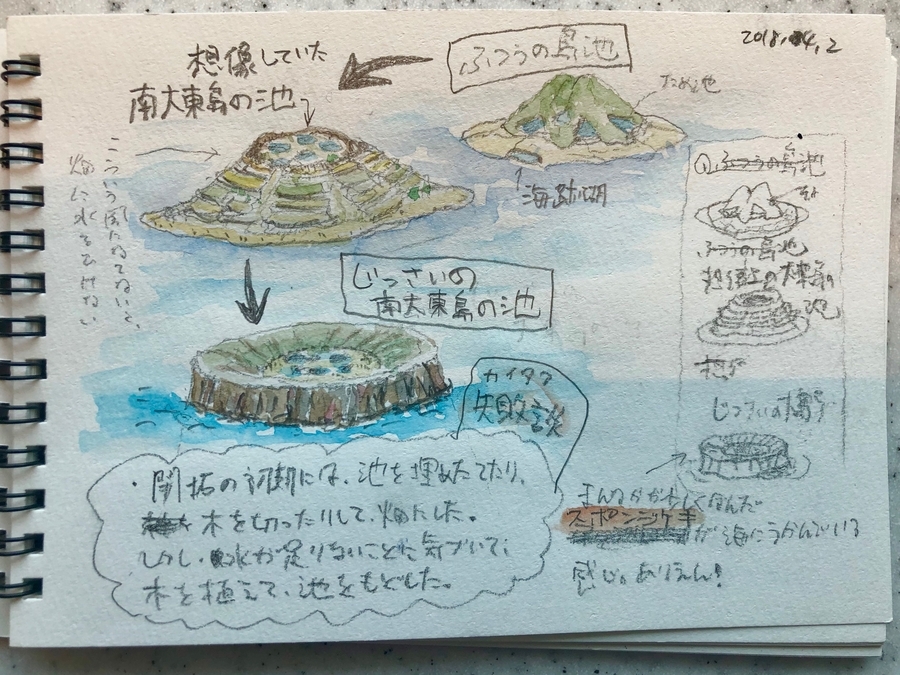 2018.04.2
ふつうの島池
想像していた
南大東島の池
ため池
海跡湖
こういう風になってないと、
畑に水をひけない
じっさいの
南大東島の池
カイタク
失敗談
・開拓の初期には、池を埋めたてたり、
木を切ったりして、畑にした。
しかし、水が足りないことに気づいて、
木を植えて、池をもどした。
ふつうの島池
ふつうの島池
想像上の大東島の
池
じっさいの
まんなかがくぼんだ
スポンジケーキ
が海にうかんでいる
感じ。ありえん!